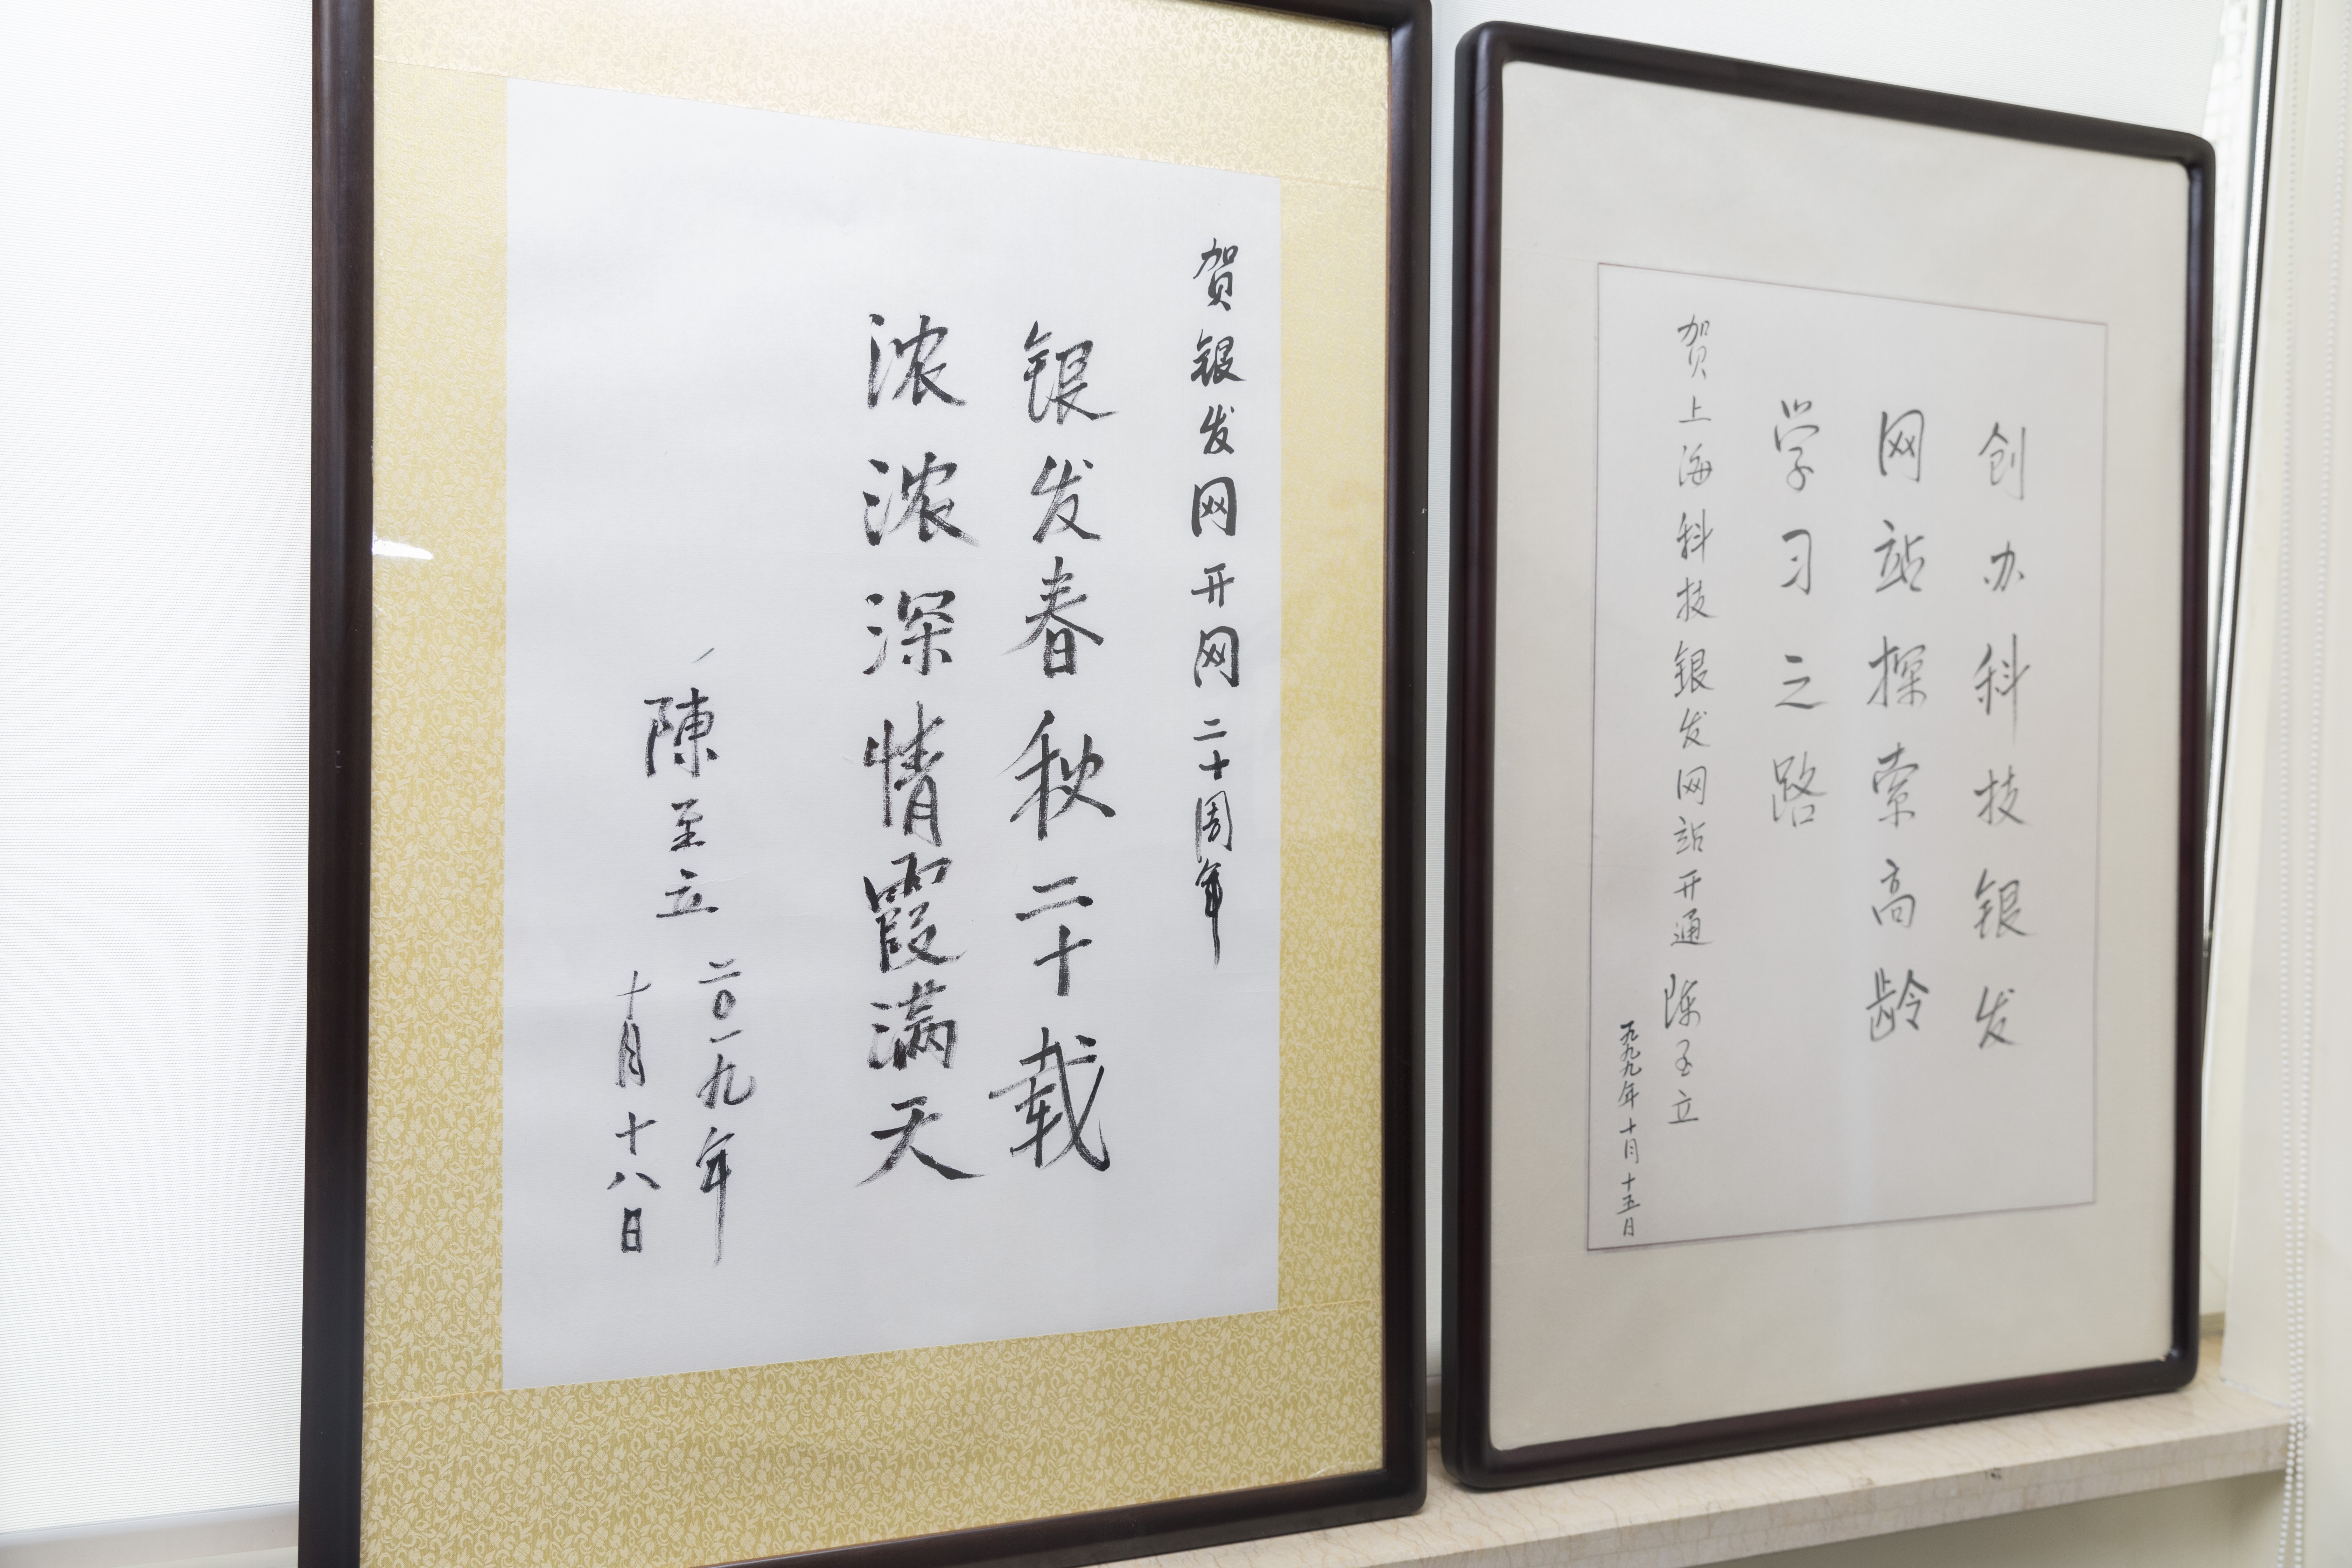 贺银发网开网二十周年
银发春秋二十载
浓浓深情霞满天
陳至立
二〇一九年
十月十八日
创办科技银发
网站探索高龄
学习之路
贺上海科技银发网站开通 陈至立
一九九九年十月十五日